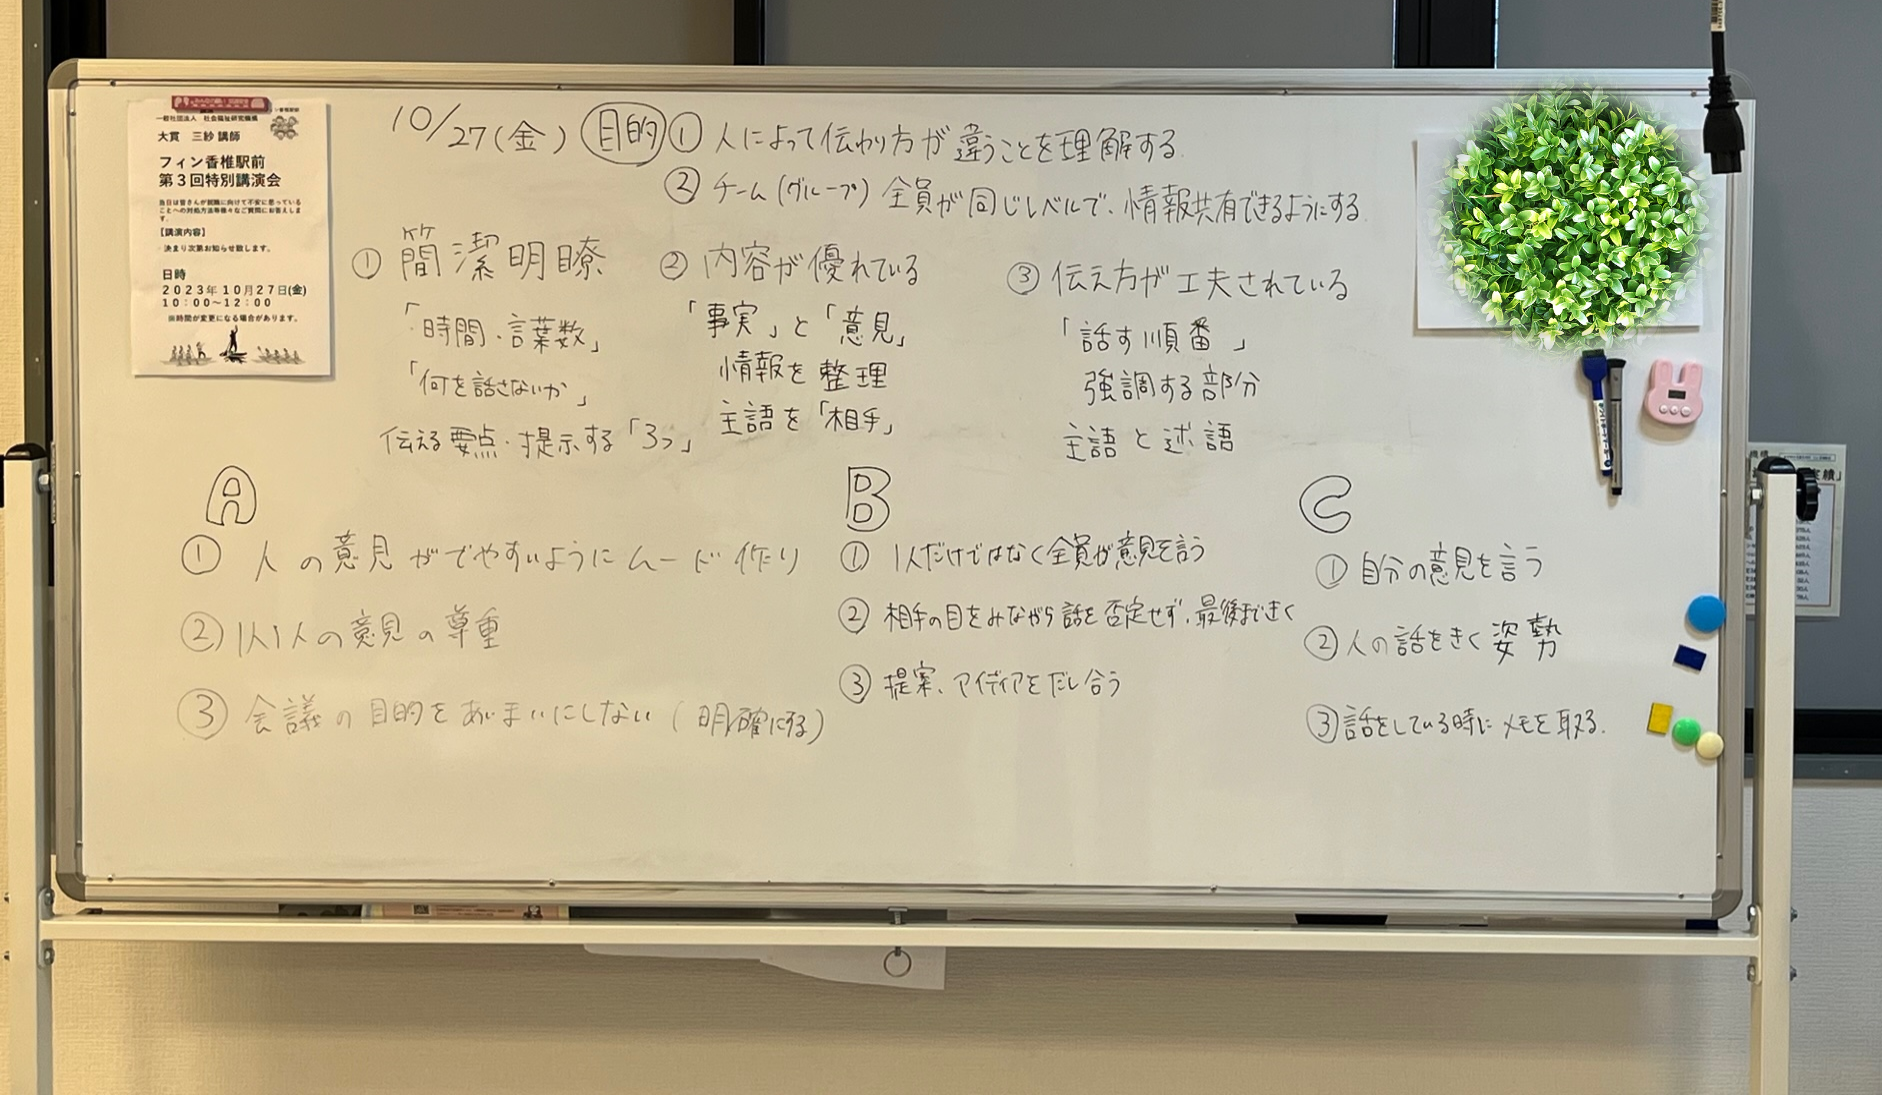 一般社団法人 社会福祉研究機構
大貫 三紗 講師
フィン香椎駅前
第3回特別講演会
当日は皆さんが就職に向けて不安に思っている
ことへの対処方法等様々なご質問にお答えしま
す。
【講演内容】
決まり次第お知らせ致します。
日時
2023年10月27日(金)
10:00~12:00
※時間が変更になる場合があります。
10/27(金) 目的 ① 人によって伝わり方が違うことを理解する.
② チーム(グループ)全員が同じレベルで、情報共有できるようにする.
① 簡潔明瞭
「時間・言葉数」
「何を話さないか」
伝える要点・提示する「3つ」
② 内容が優れている
「事実」と「意見」
情報を整理
主語を「相手」
③ 伝え方が工夫されている
「話す順番」
強調する部分
主語と述語
A
① 人の意見がでやすいようにムード作り
② 1人1人の意見の尊重
③ 会議の目的をあいまいにしない(明確にする)
B
① 1人だけではなく全員が意見を言う
② 相手の目をみながら話を否定せず、最後まできく
③ 提案、アイディアをだし合う
C
① 自分の意見を言う
② 人の話をきく姿勢
③ 話をしている時にメモを取る.